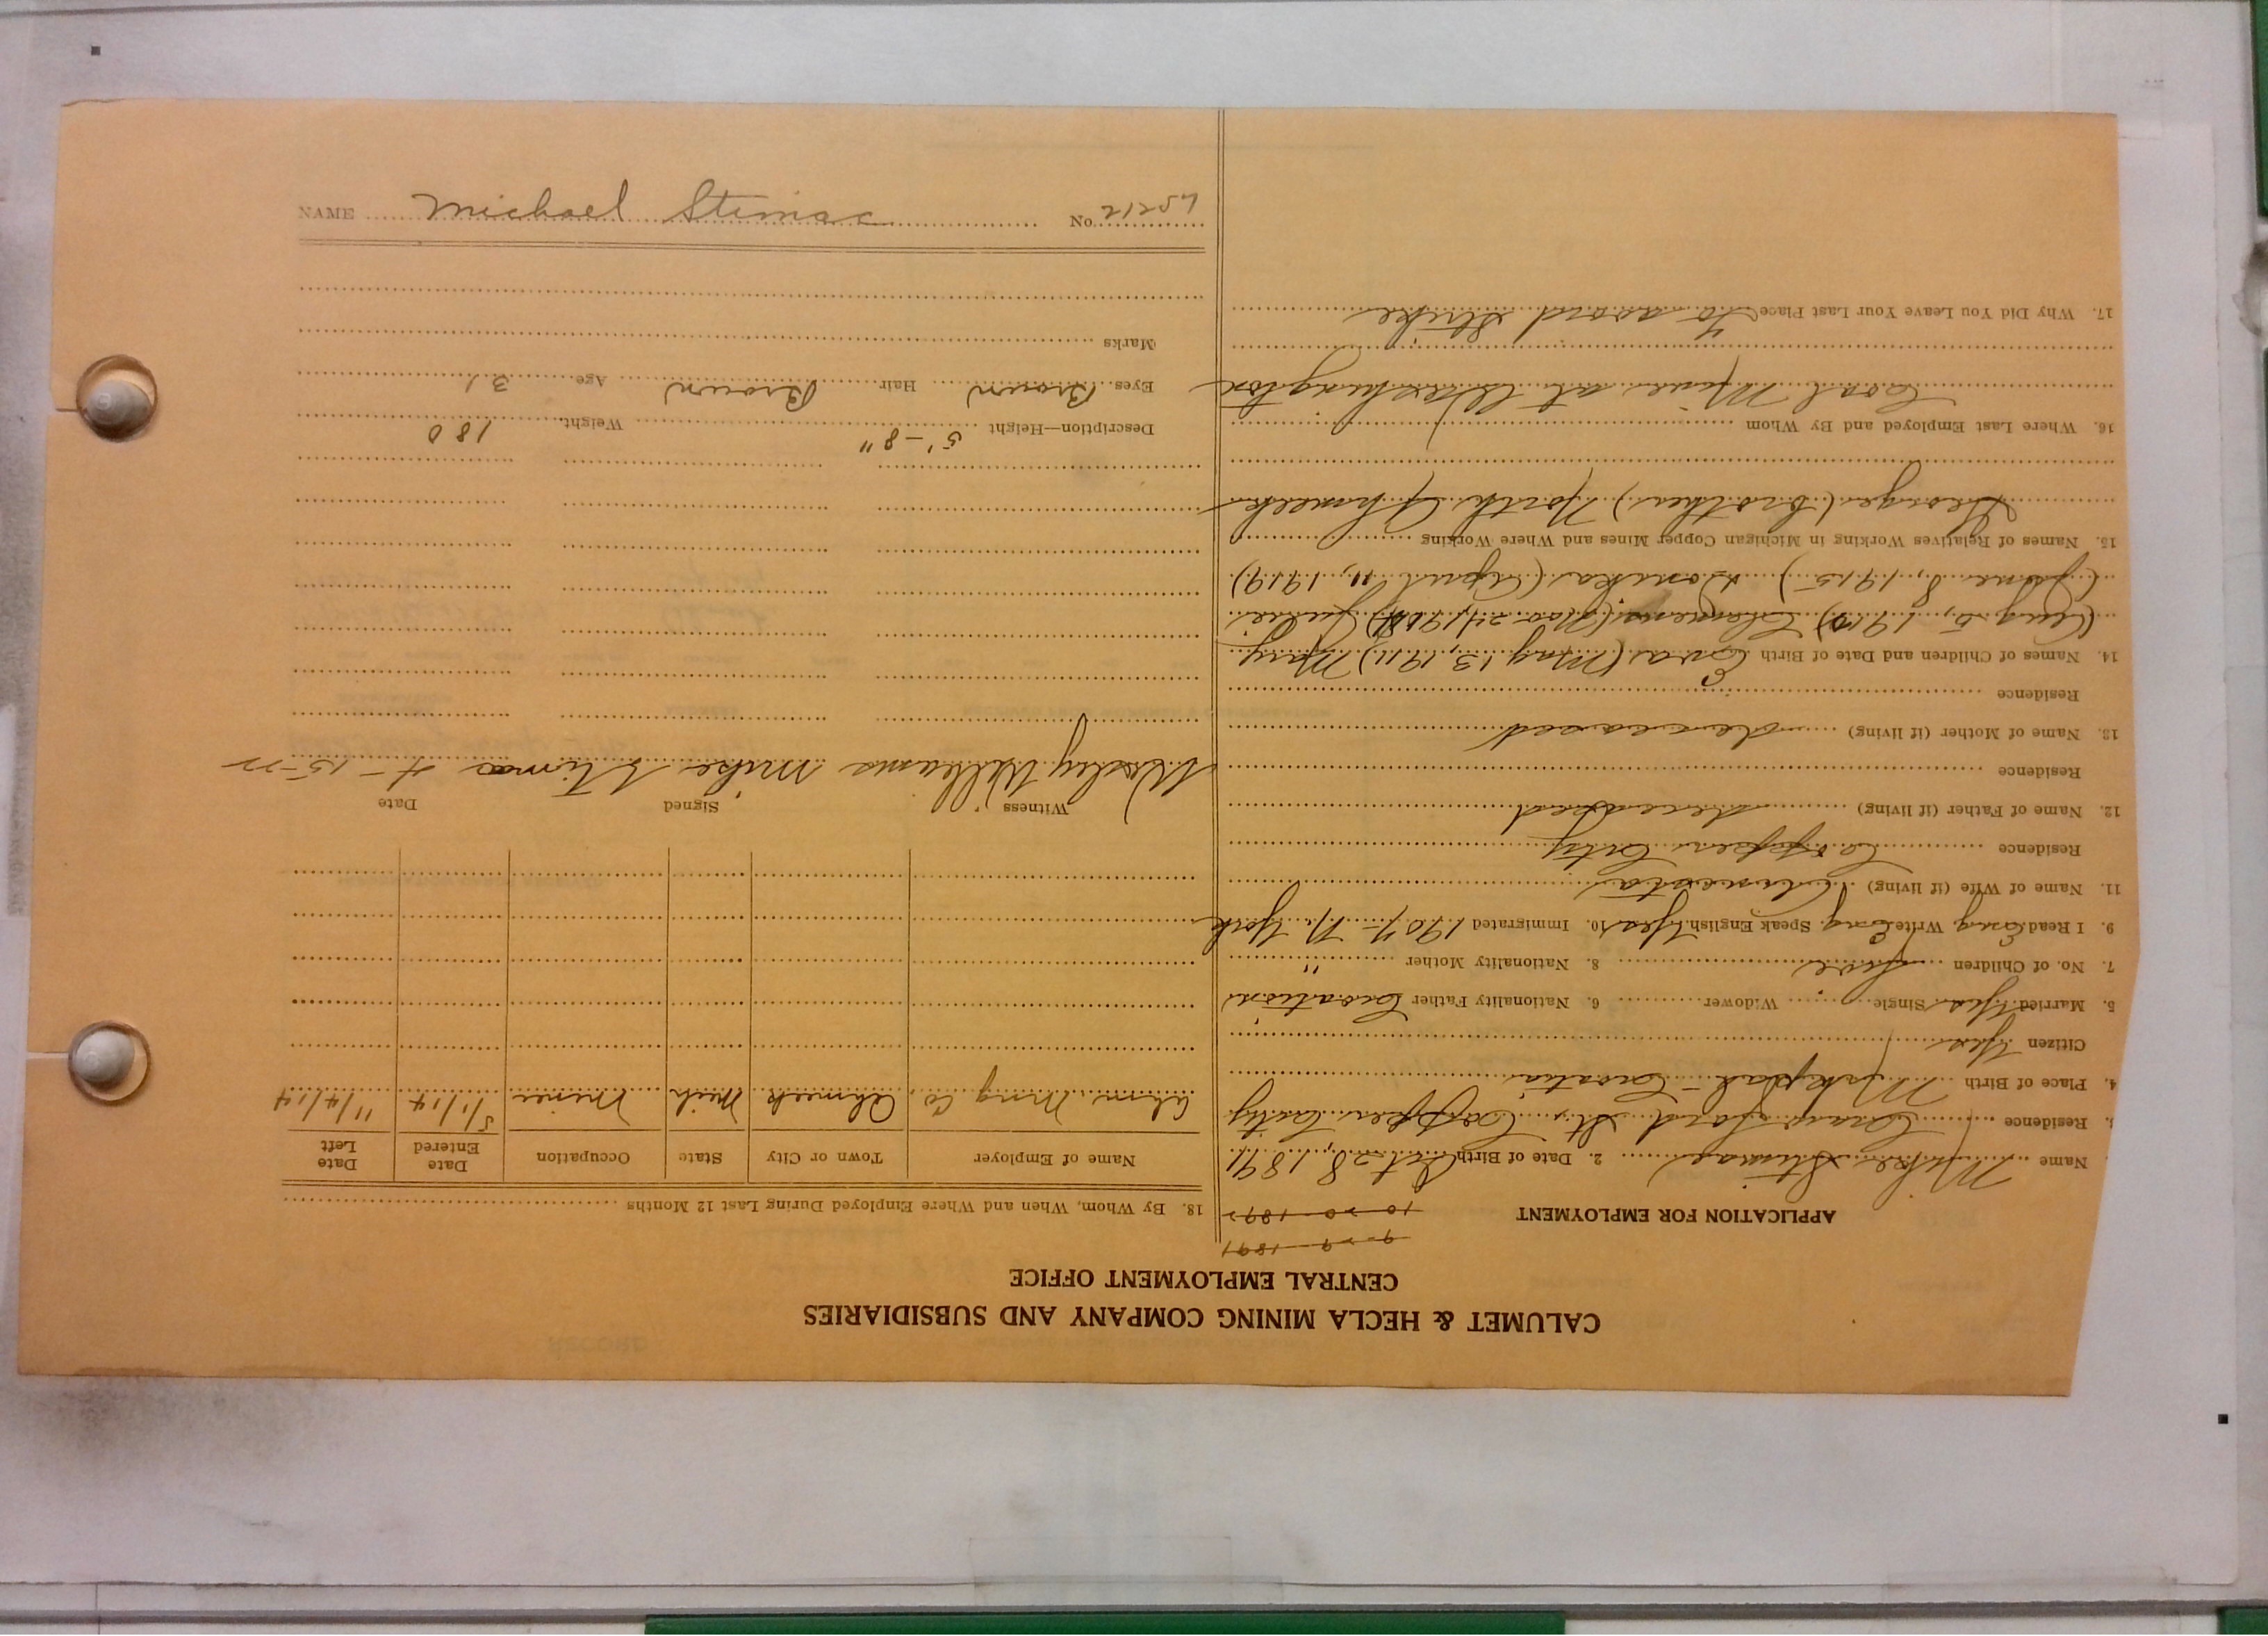 CALUMET & HECLA MINING COMPANY AND SUBSIDIARIES
CENTRAL EMPLOYMENT OFFICE
9-29-1891
APPLICATION FOR EMPLOYMENT 10-20-1892
Name Mike Stimac 2. Date of Birth Oct 28, 1891
Residence Crawford St, Copper City
4. Place of Birth Croatia
Citizen Yes
5. Married Yes Single Widower 6. Nationality Father Croation
7. No. of Children five 8. Nationality Mother "
9. I Read Eng Write Eng. Speak English Yes 10. Immigrated 1907- N. York
11. Name of Wife (if living)
Residence Copper City
12. Name of Father (if living) deceased
Residence
13. Name of Mother (if living) deceased
Residence
14. Names of Children and Date of Birth Eva (May 13, 1911) Mary
(Aug 5, 1910) (Nov 24, 1908)
(June 8, 1915) + (April 11, 1919)
15. Names of Relatives Working in Michigan Copper Mines and Where Working
George (brother) North Ahmeek
16. Where Last Employed and By Whom
Coal Mine at Washington
17. Why Did You Leave Your Last Place To avoid strike
18. By Whom, When and Where Employed During Last 12 Months
Name of Employer Town or City State Occupation Date Entered Date Left
Ahm. Mng Co. Ahmeek Mich Miner 5/1/14 11/4/14
Witness Signed Date
Wesley Williams Mike Stimac 4-15-22
Description—Height 5'-8" Weight 180
Eyes Brown Hair Brown Age 31
Marks
NAME Michael Stimac No. 21257